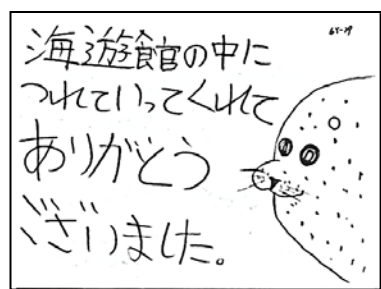 海遊館の中に
つれていってくれて
ありがとう
ございました。